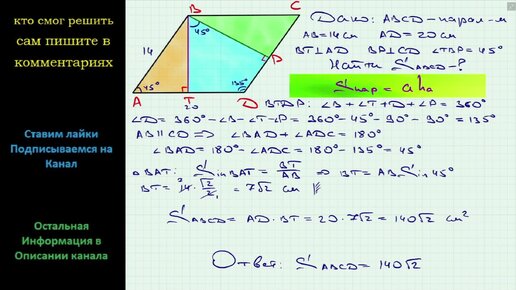 кто смог решить
сам пишите в
комментариях
Ставим лайки
Подписываемся на
Канал
Остальная
Информация в
Описании канала
B
C
45°
14
P
135°
45°
A
T
20
D
Дано: ABCD – парал-м
AB = 14см AD = 20см
BT⊥AD BP⊥CD ∠TBP = 45°
Найти S ABCD – ?
S пар = a ha
BTDP: ∠B + ∠T + ∠D + ∠P = 360°
∠D = 360° – ∠B – ∠T – ∠P = 360° – 45° – 90° – 90° = 135°
AB || CD => ∠BAD + ∠ADC = 180°
∠BAD = 180° – ∠ADC = 180° – 135° = 45°
△BAT: Sin BAT = BT/AB => BT = AB Sin 45°
BT = 14 · √2/2 = 7√2 см
S ABCD = AD · BT = 20 · 7√2 = 140√2 см²
Ответ: S ABCD = 140√2